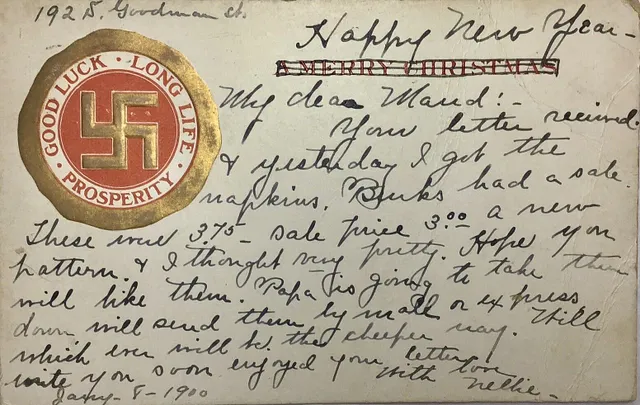 192 S. Goodman St.
Happy New Year-
A MERRY CHRISTMAS
GOOD LUCK · LONG LIFE · PROSPERITY ·
My dear Maud:-
Your letter received.
& yesterday I got the
napkins. Burks had a sale.
These were 3.75- sale price 3.00 a new
pattern. & I thought very pretty. Hope you
will like them. Papa is going to take them
down will send them by mail or express
which ever will be the cheeper way. Will
write you soon enjoyed your letter
With love
Nellie-
Jany- 8-1900